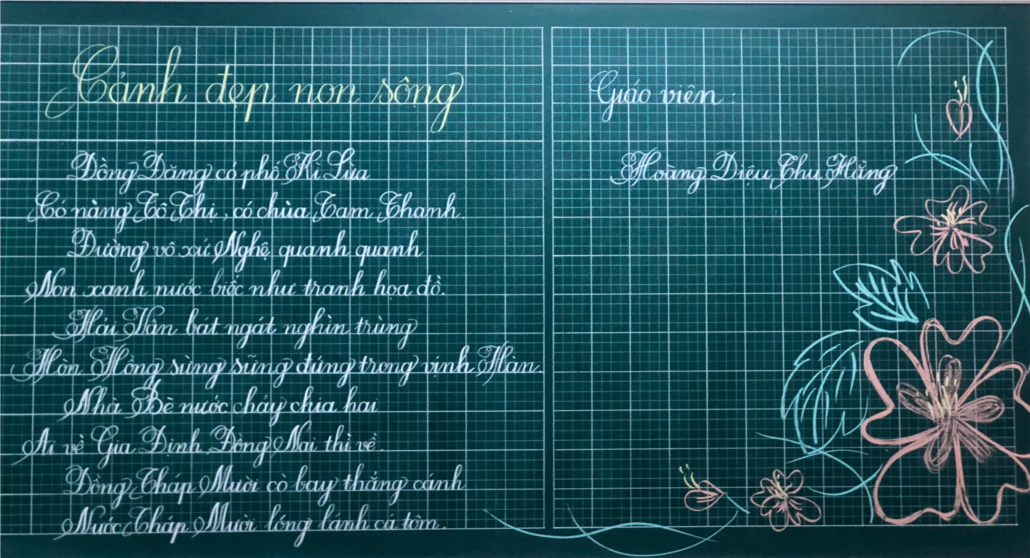 Cảnh đẹp non sông
Đồng Đăng có phố Kì Lừa
Có nàng Tô Thị, có chùa Tam Thanh.
Đường vô xứ Nghệ quanh quanh
Non xanh nước biếc như tranh họa đồ.
Hải Vân bát ngát nghìn trùng
Hòn Hồng sừng sững đứng trong vịnh Hàn.
Nhà Bè nước chảy chia hai
Ai về Gia Định, Đồng Nai thì về.
Đồng Tháp Mười cò bay thẳng cánh
Nước Tháp Mười lóng lánh cá tôm.
Giáo viên:
Hoàng Diệu Thu Hằng